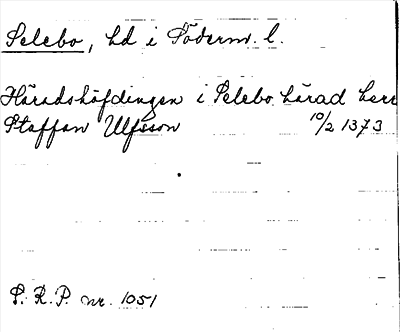 Selebo, hd i Söderm. l.
Häradshöfdingen i Selebo härad herr
Staffan Ulfsson 10/2 1373
S. R. P. nr. 1051